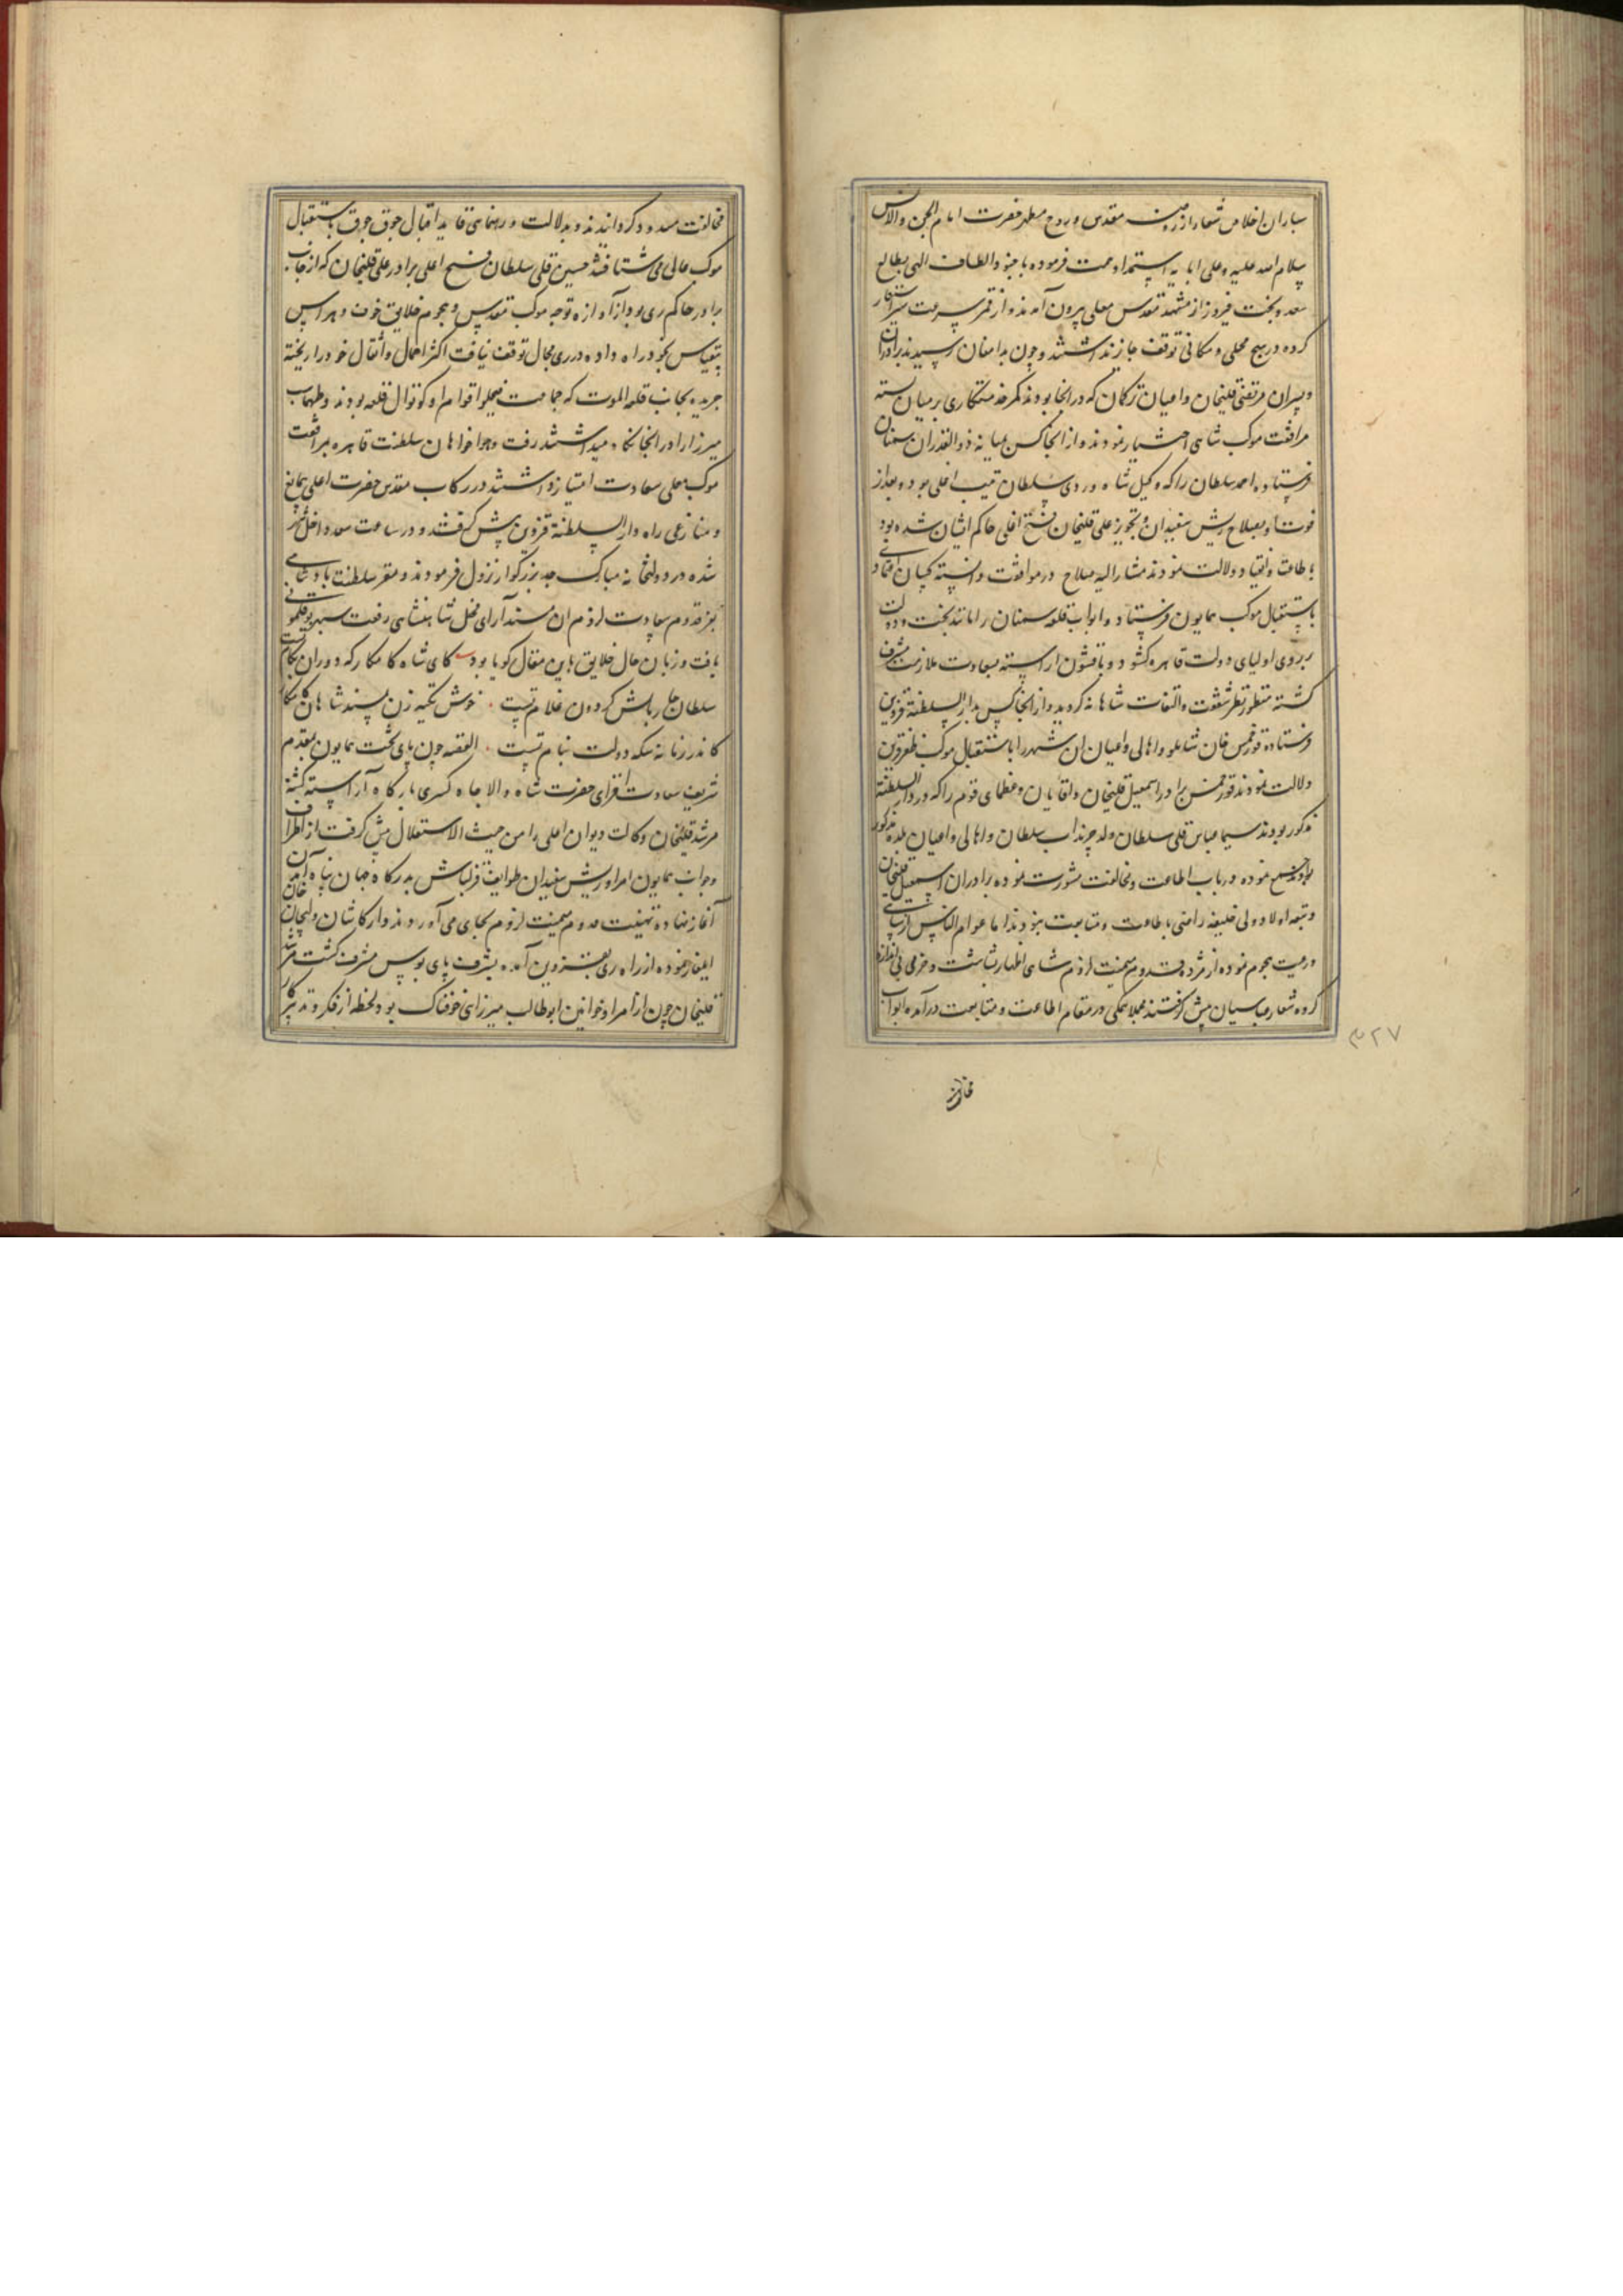 سپاران اخلاص شعار از روضه مقدس و روح مطهر حضرت امام الجن والانس
سلام الله علیه و علی ابایه استمداد همت فرموده با جنود الطاف الهی بطالع
سعد و بخت فیروز از مشهد مقدس معلی بیرون آمدند و از قمر سرعت سیر استعار
کرده در هیچ محلی و مکانی توقف جایز نداشتند و چون بدامغان رسیدند برادران
و پسران مرتضی قلیخان و اعیان ترکمان که در انجا بودند کمر خدمتکاری بر میان بسته
مرافقت موکب شاهی اختیار نمودند و از انجا کس بمیانه ذوالقدران سمنان
فرستاده احمد سلطان را که وکیل شاه وردی سلطان قتیب اغلی بوده بعد از
فوت او بصلاح ریش سفیدان و تجویز علی قلیخان فتح اغلی حاکم ایشان شده بود
باطاعت و انقیاد دلالت نمودند مشارالیه صلاح در موافقت دانسته کسان اعتمادی
باستقبال موکب همایون فرستاد و ابواب قلعه سمنان را مانند بخت و دولت
بر روی اولیای دولت قاهره کشود و با قشون اراسته بسعادت ملازمت مشرف
کشته منظور نظر شفقت و التفات شاهانه کردید و از انجا کس بدار السلطنه قزوین
فرستاده قورخمس خان شاملو و اهالی و اعیان ان شهر را باستقبال موکب ظفر قرین
دلالت نمودند قورخمس برادر اسمعیل قلیخان و اقایان و عظمای قوم را که در دار السلطنه
مذکور بودند سیما عباس قلی سلطان ولد چرنداب سلطان و اهالی و اعیان بلده مذکور
جمع نموده در باب اطاعت و مخالفت مشورت نموده برادران اسمعیل قلیخان
و تبعه اولاد ولی خلیفه راضی باطاعت و متابعت نبودند اما عوام الناس از سپاهی
و رعیت هجوم نموده از مژده قدوم میمنت لزوم شاهی اظهار بشاشت و خرمی بی اندازه
کرده شعار عباسیان پیش کرفتند مجملا همکی در مقام اطاعت و متابعت درآمده ابواب
۳۲۷
مخالفت
مخالفت مسدود کردانیدند و بدلالت و رهنمائی قاید اقبال جوق جوق باستقبال
موکب عالی می شتافتند حسین قلی سلطان فتح اغلی برادر علی قلیخان که از جانب
برادر حاکم ری بود از آوازه توجه موکب مقدس و هجوم خلایق خوف و هراس
بیقیاس بخود راه داده در ری مجال توقف نیافت اکثر احمال و اثقال خود را ریخته
جریده بجانب قلعه الموت که جماعت اقوام او کوتوال قلعه بودند و طهماسب
میرزا را در انجا نکاه میداشتند رفت و هواخواهان سلطنت قاهره بمرافقت
موکب معلی سعادت امتیاز داشتند در رکاب مقدس حضرت اعلی بی مانع
و منازعی راه دار السلطنه قزوین پیش کرفتند و در ساعت سعد داخل شهر
شده در دولتخانه مبارک جد بزرکوار نزول فرمودند و مقر سلطنت پادشاهی
بفر قدوم سعادت لزوم ان مسند آرای محفل شاهنشاهی رفعت سپهر بوقلمونی
یافت و زبان حال خلایق باین مقال کویا بود کای شاه کامکار که دوران بکام تست
سلطان چار بالش کردون غلام تست خوش تکیه زن بمسند شاهان کامکار
کاندر زمانه سکه دولت بنام تست القصه چون پای تخت همایون بمقدم
شریف سعادت افزای حضرت شاه والا جاه کسری بارکاه آراسته کشته
مرشد قلیخان وکالت دیوان اعلی را من حیث الاستقلال پیش کرفت از اطراف
و جوانب همایون امرا و ریش سفیدان طوایف قزلباش بدرکاه جهان پناه آمدن
آغاز نهاده تهنیت قدوم میمنت لزوم بجای می آوردند و از کاشان ولیجان خان
ایلغار نموده از راه ری بقزوین آمده بشرف پای بوس مشرف کشت مرشد
قلیخان چون از امرا و خوانین ابوطالب میرزائی خوفناک بود لحظه از فکر و تدبیر کار